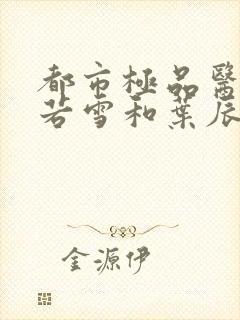 都市極品醫
若雪和葉辰
金源伊